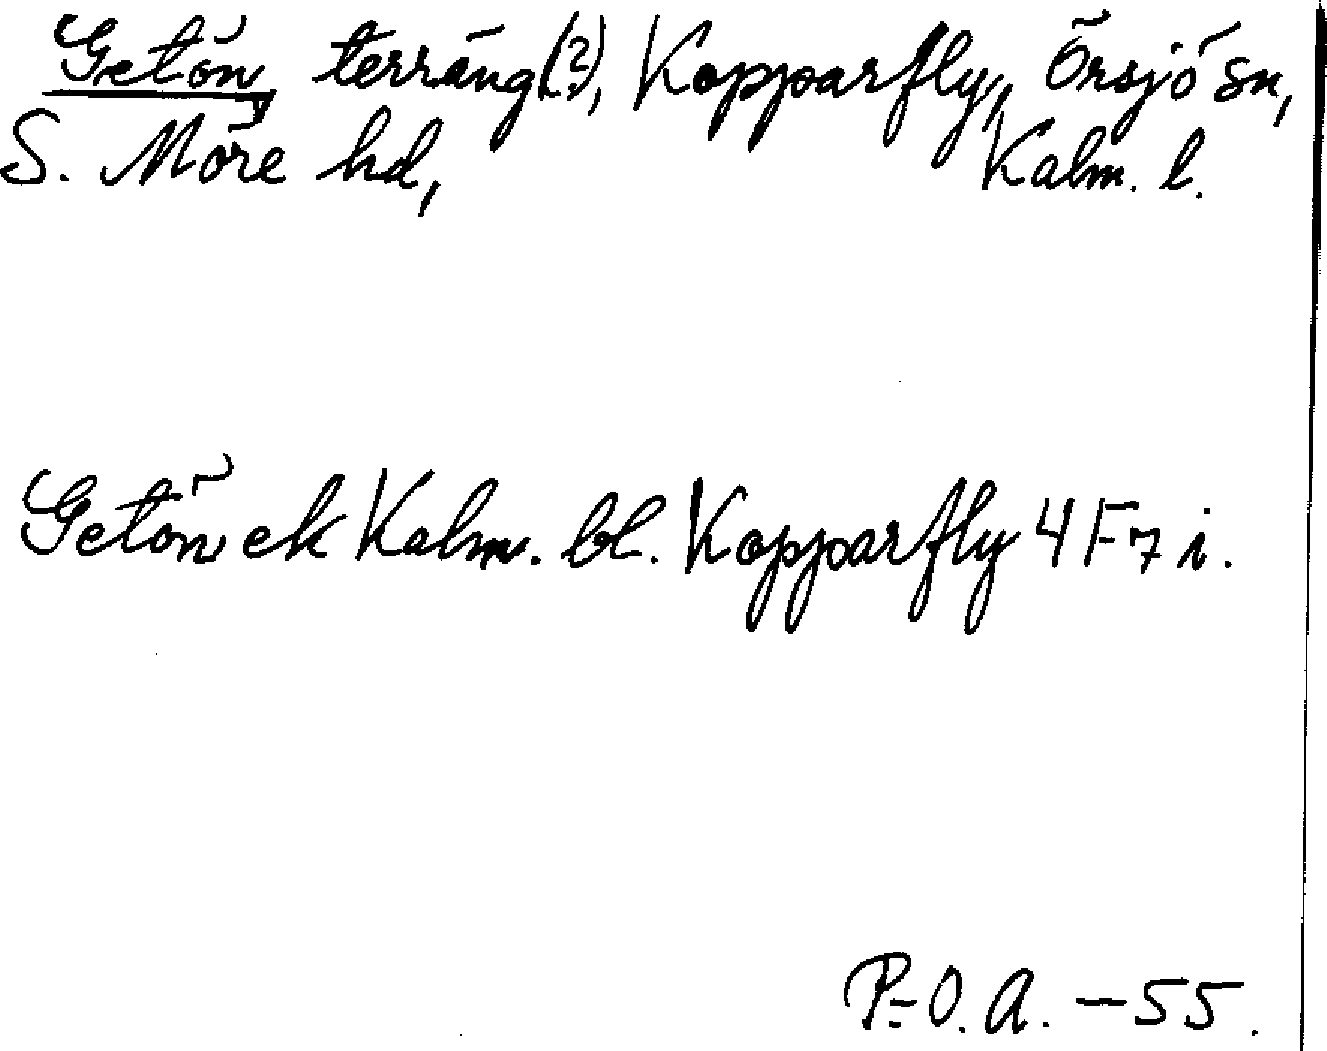 Getön, terräng(?), Kopparfly, Örsjö sn,
S. Möre hd, Kalm. l.
Getön ek Kalm. bl. Kopparfly 4F7i.
P-O.A. -55.